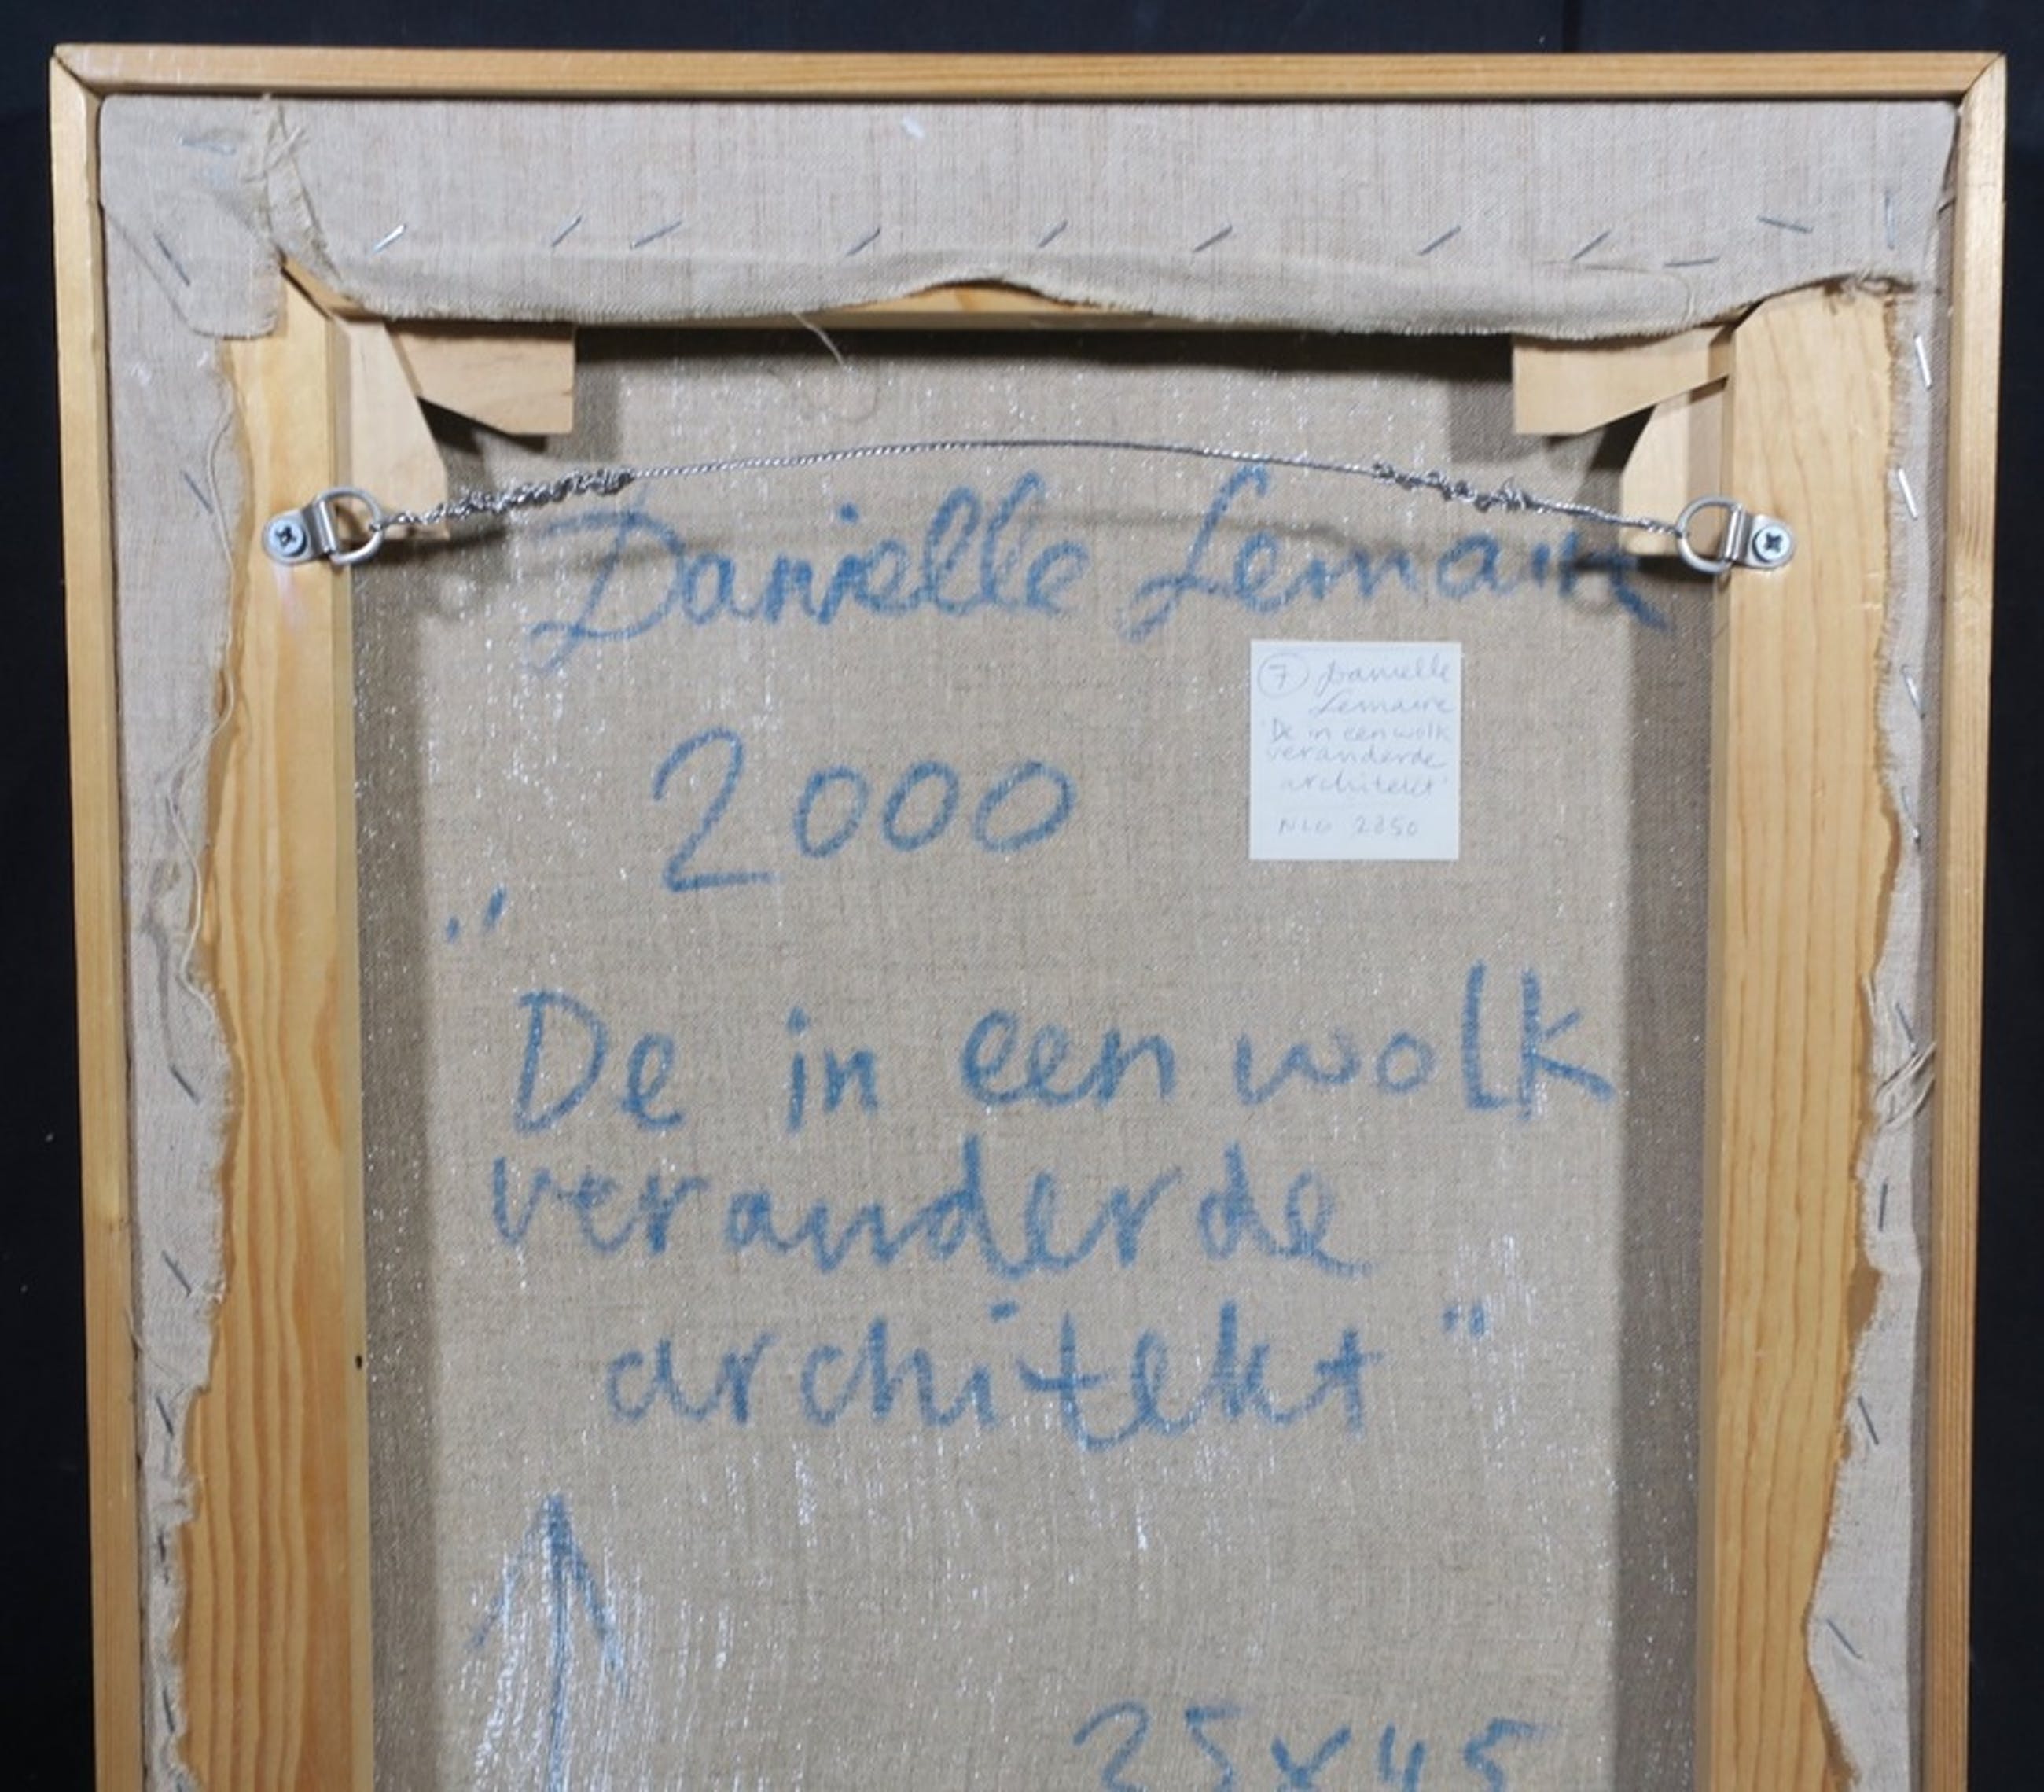 Danielle Lemaire
2000
„De in een wolk
veranderde
architekt"
⑦ Danielle
Lemaire
'De in een wolk
veranderde
architekt'
x 45